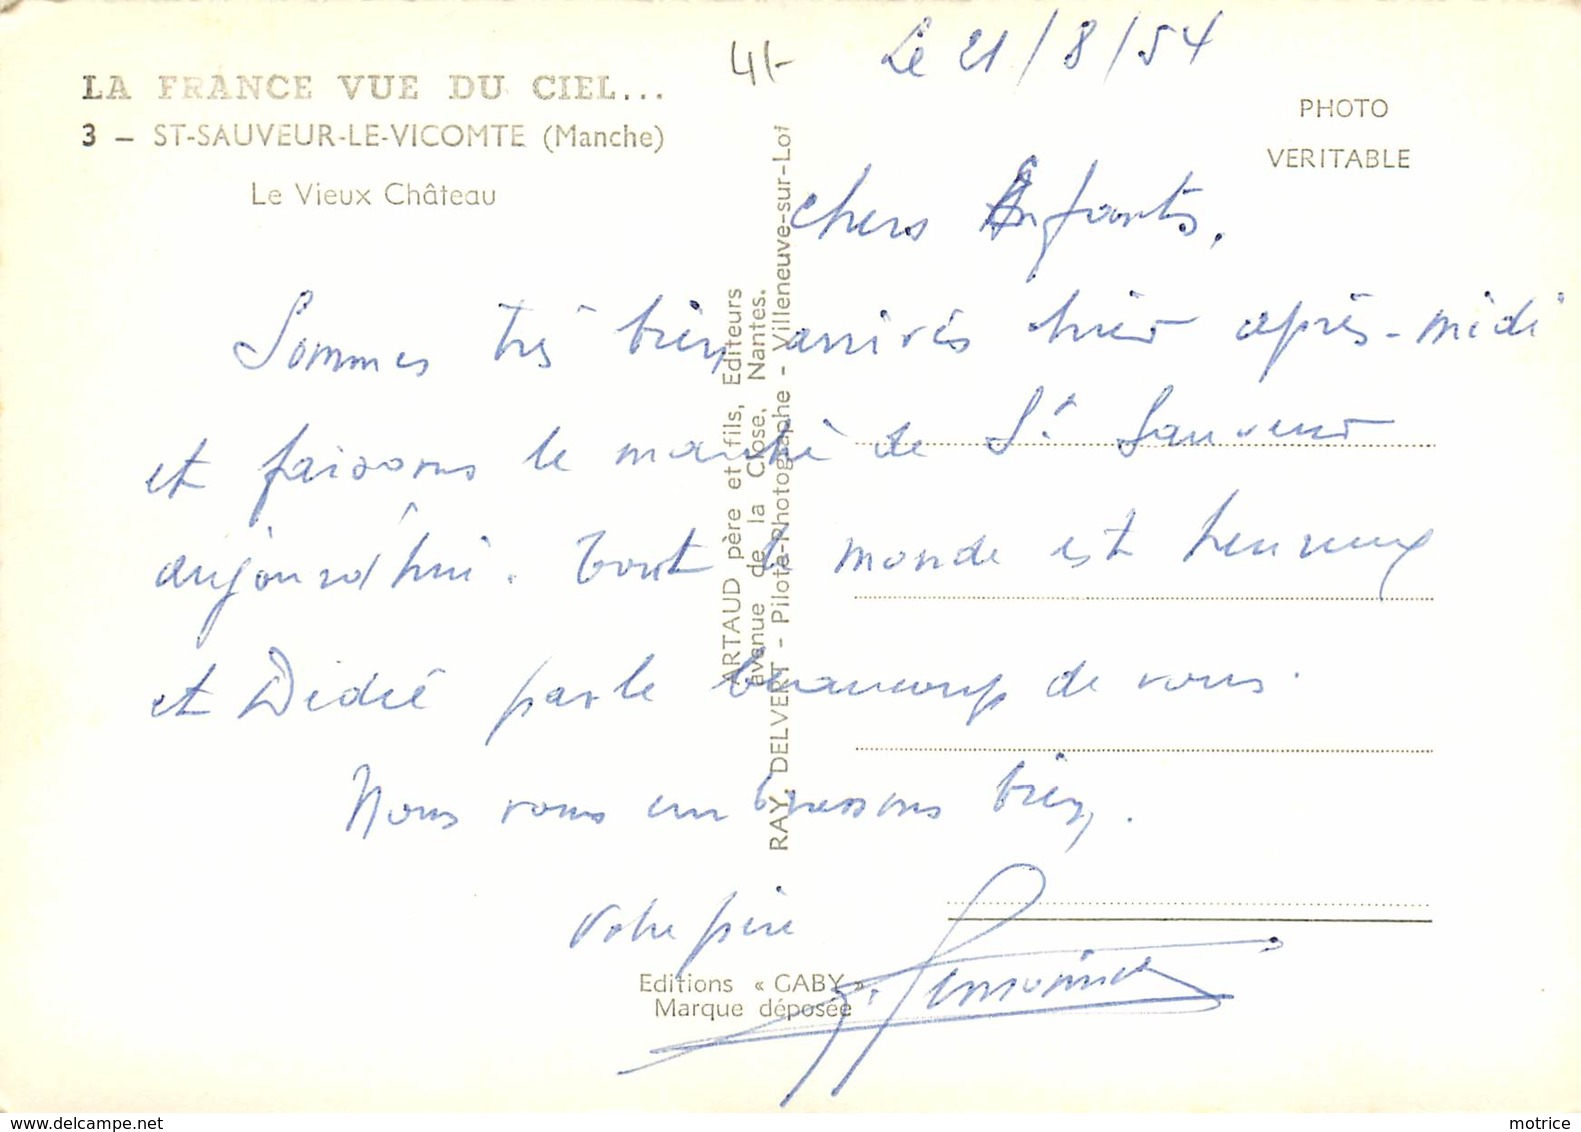 LA FRANCE VUE DU CIEL...
3 – ST-SAUVEUR-LE-VICOMTE (Manche)
Le Vieux Château
4/-
Le 21/8/54
PHOTO
VERITABLE
Chers Enfants,
Sommes très bien arrivés hier après-midi
et faisons le marché de St Sauveur
aujourd'hui. Tout le monde est heureux
et Didié parle beaucoup de vous.
Nous vous embrassons bien.
Votre père
ARTAUD père et fils, Editeurs
avenue de la Close, Nantes.
RAY. DELVERT - Pilote-Photographe - Villeneuve-sur-Lot
Editions « GABY »
Marque déposée
https://www.delcampe.net
motrice